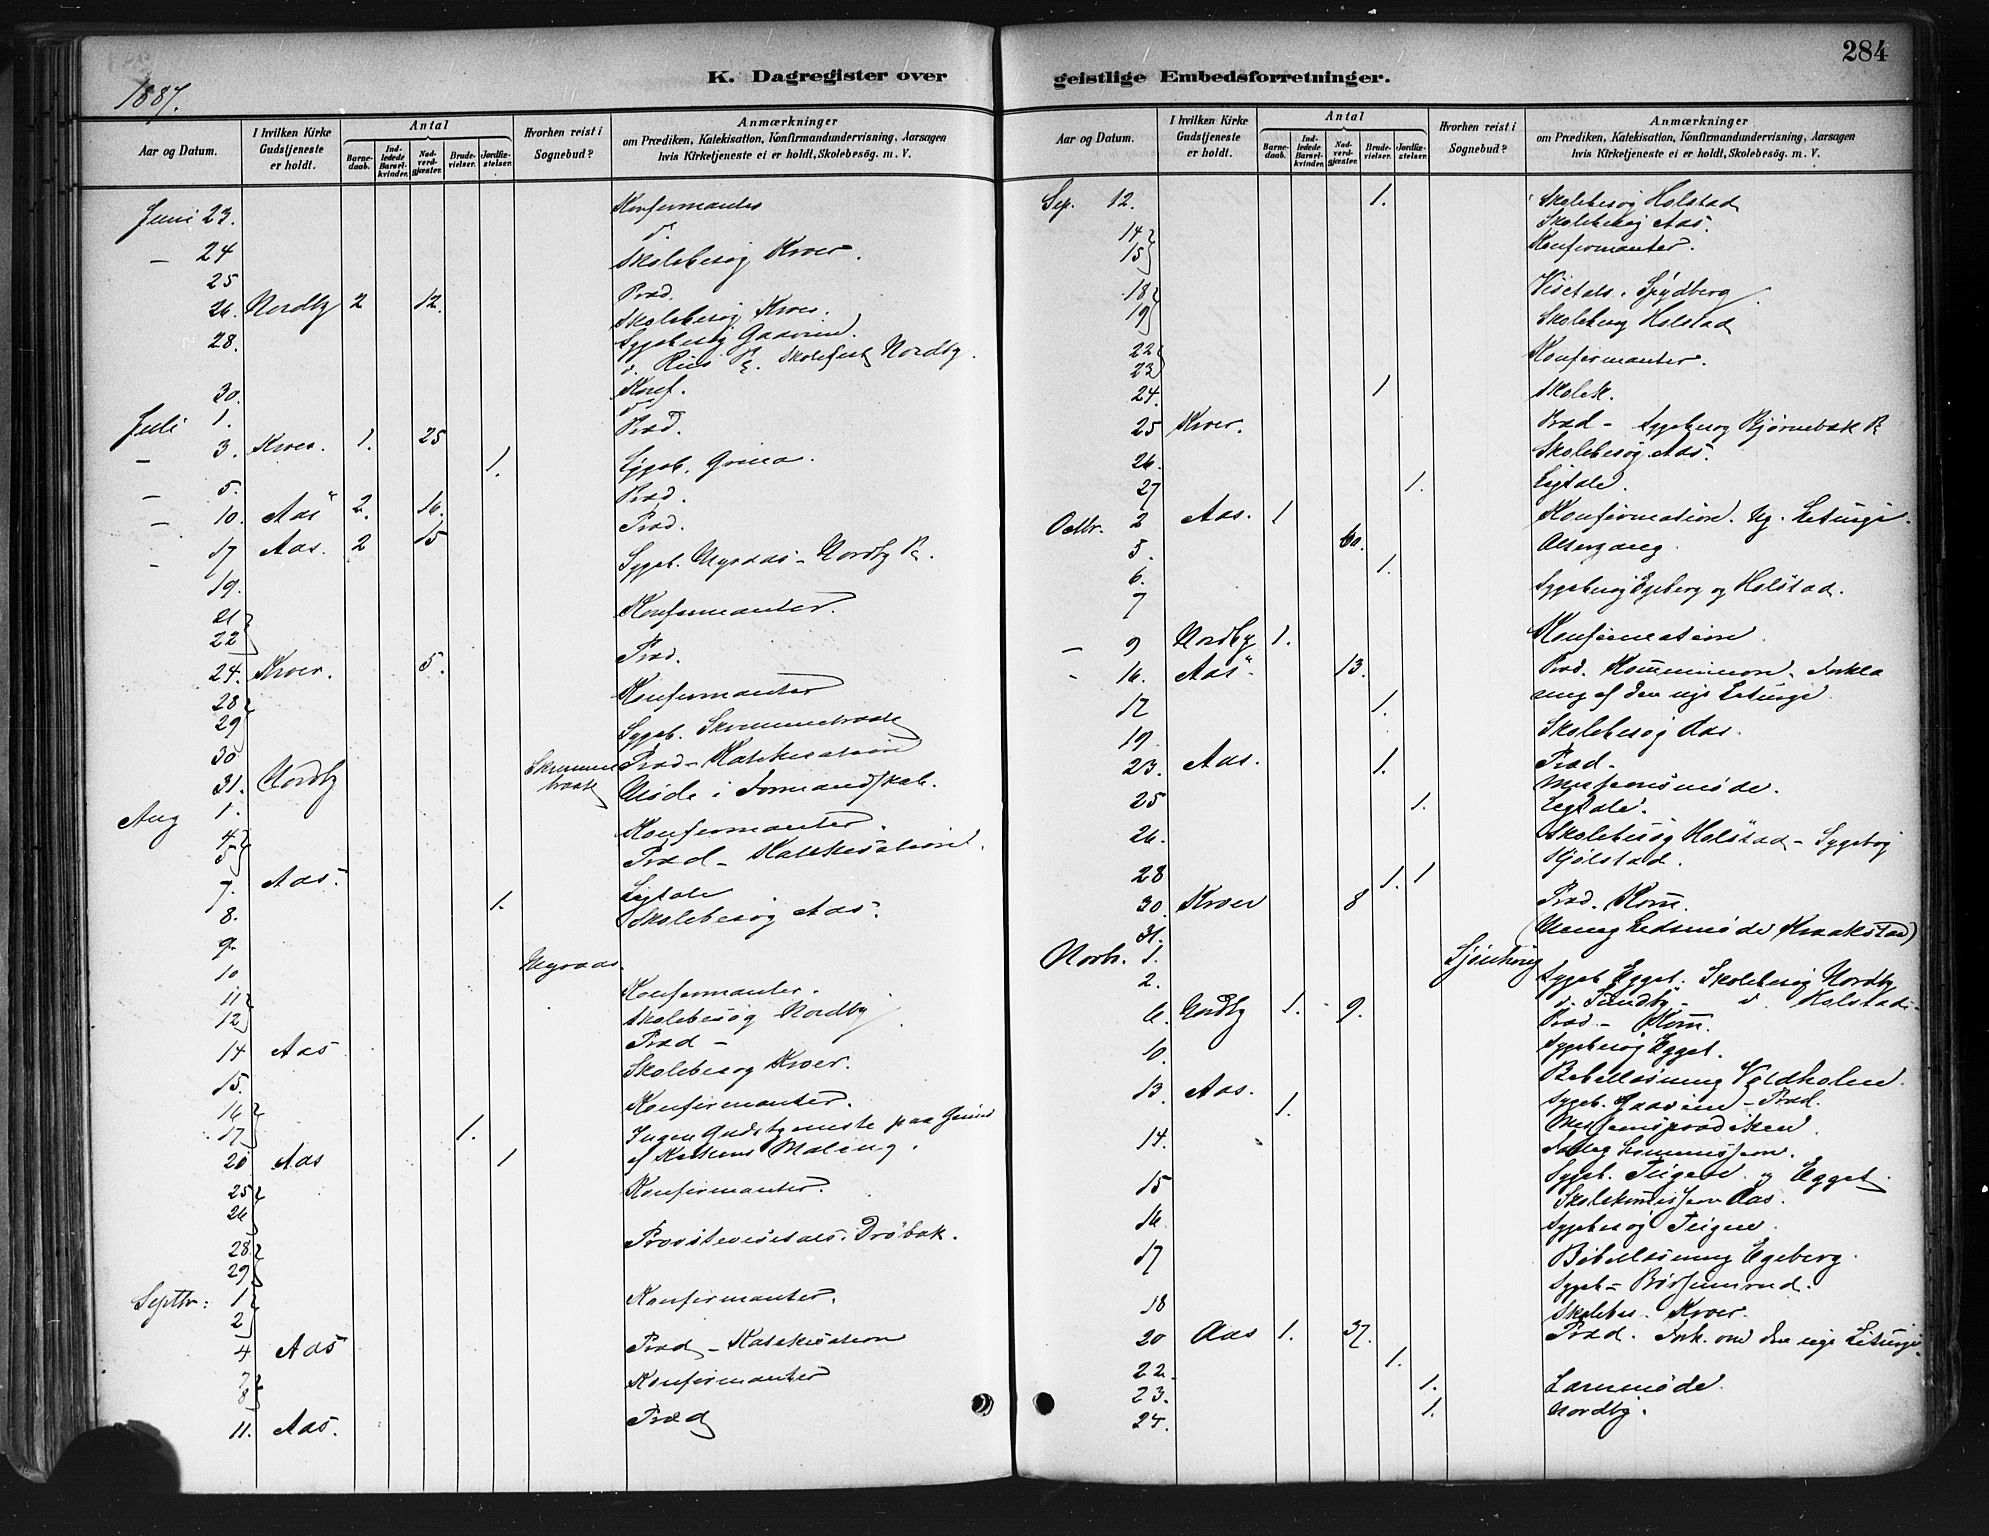 284
1887.
K. Dagregister over
Aar og Datum.
I hvilken Kirke Gudstjeneste er holdt.
Antal
Barnedaab.
Indledede Barselkvinder.
Nadverdgjæster.
Brudevielser.
Jordfæstelser.
Hvorhen reist i Sognebud?
Anmærkninger
om Prædiken, Katekisation, Konfirmandundervisning, Aarsagen
hvis Kirketjeneste ei er holdt, Skolebesög. m. V.
Juni 23. Konfirmanter
d.
— 24 Skolebesøg Kroer.
25
26 Nordby 2 12. Præd.
Skolebesøg Kroer.
28. Sygebesøg Gaarin.
d. Riis Skolefest Nordby.
30. Konf.
Juli 1. d
— 3. Kroer. 1. 25 Præd.
— 5. 1. Sygeb.
— 10. Aas 2. 16. Præd.
- 17 Aas. 2 15 Præd.
19. Sygeb. Myraas - Nordby P.
21
22 Konfirmanter.
24. Kroer. 5. Præd.
28
29 Konfirmanter
30 Sygeb.
31. Nordby Præd - Katekisation
Aug 1. Møde i Formandskab.
4
5 Konfirmanter.
7. Aas. Præd - Katekisation.
8. 1. Ligtale
9. Skolebesøg Aas.
10 Myraas.
11
12 Konfirmanter.
Skolebesøg Nordby
14 Aas Præd -
15. Skolebesøg Kroer.
16
17 1. Konfirmanter.
20 Aas 1 Ingen Gudstjeneste paa Grund
af Kirkens Maling.
25
26 Konfirmanter.
28
29 Provstevisitats. Drøbak.
Septbr: 1
2 Konfirmanter.
4 Aas Præd - Katekisation
7
8 Konfirmanter
11. Aas. Præd
geistlige Embedsforretninger.
Aar og Datum.
I hvilken Kirke Gudstjeneste er holdt.
Antal
Barnedaab.
Indledede Barselkvinder.
Nadverdgjæster.
Brudevielser.
Jordfæstelser.
Hvorhen reist i Sognebud?
Anmærkninger
om Prædiken, Katekisation, Konfirmandundervisning, Aarsagen
hvis Kirketjeneste ei er holdt, Skolebesög. m. V.
Sep. 12. 1. Skolebesøg Holstad
Skolebesøg Aas.
14
15 Konfirmanter.
18
19 Visitats. Spydberg
Skolebesøg Holstad
22
23 Konfirmanter.
24. 1 Skolek.
25 Kroer. Præd - Sygebesøg Bjørnebæk P
26. Skolebesøg Aas.
27 1. Ligtale.
Octbr. 2 Aas. 1 Konfirmation. Ny Liturgi.
5. 60. Altergang
6. 1.
7 Sygebesøg Egeberg og Holstad.
— 9 Nordby 1. Konfirmation
- 16. Aas 13. Præd. Kommunion. Forkla
ring af den nye Liturgi
17 1.
19. Skolebesøg Aas.
23. Aas. 1. Præd -
Missionsmøde.
25 1. Ligtale.
26. Skolebesøg Holstad - Sygebesøg
Kjølstad.
28 1. 1
30. Kroer 8 Præd. Kom.
31. (Menighedsmøde Kraakstad)
Novbr. 1.
2. Sygeb Egget. Skolebesøg Nordby
d. Sundby - d. Holstad -
6. Nordby 1. 9. Præd - Kom.
10. Sygebesøg Egget.
Bibellæsning Voldholen
13. Aas. 1. Sygeb. Gaarin - Præd.
Missionsprædiken.
14.
15 Sygeb. Teigen og Egget.
Skolekommission Aas.
16. Sygebesøg Teigen.
17 Bibellæsning Egeberg.
Sygeb -
18 Skolebes - Kroer.
20 Aas 1. 37. Præd. Fork. om den nye Liturgi.
22 1.
23. 1. Læremøde.
24. 1. Nordby.